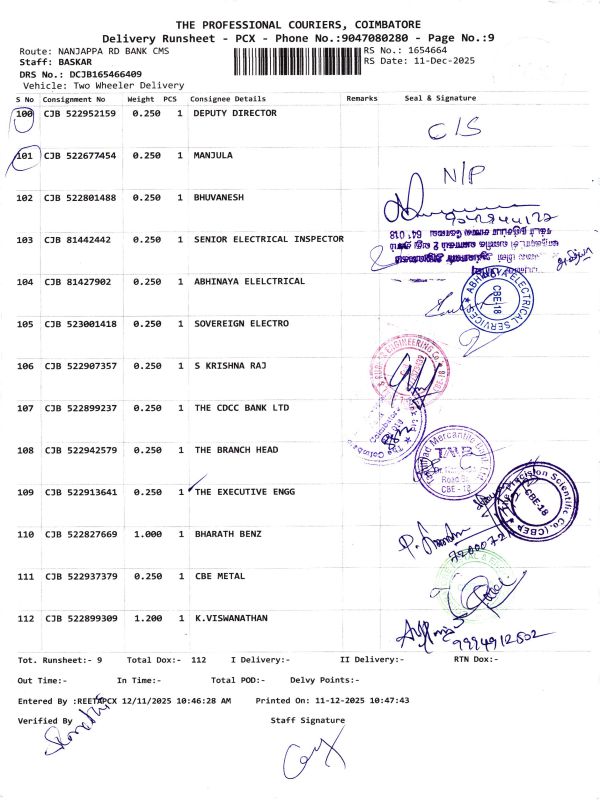 THE PROFESSIONAL COURIERS, COIMBATORE
Delivery Runsheet - PCX - Phone No.:9047080280 - Page No.:9
Route: NANJAPPA RD BANK CMS RS No.: 1654664
Staff: BASKAR RS Date: 11-Dec-2025
DRS No.: DCJB165466409
Vehicle: Two Wheeler Delivery
S No Consignment No Weight PCS Consignee Details Remarks Seal & Signature
100 CJB 522952159 0.250 1 DEPUTY DIRECTOR C/S
101 CJB 522677454 0.250 1 MANJULA N/P
102 CJB 522801488 0.250 1 BHUVANESH
103 CJB 81442442 0.250 1 SENIOR ELECTRICAL INSPECTOR
104 CJB 81427902 0.250 1 ABHINAYA ELELCTRICAL
ABHINAYA ELECTRICAL SERVICES CBE-18
105 CJB 523001418 0.250 1 SOVEREIGN ELECTRO
106 CJB 522907357 0.250 1 S KRISHNA RAJ
ENGINEERING CO.
107 CJB 522899237 0.250 1 THE CDCC BANK LTD
108 CJB 522942579 0.250 1 THE BRANCH HEAD
Mercantile Bank Ltd TMB CBE - 18
109 CJB 522913641 0.250 1 THE EXECUTIVE ENGG
The Precision Scientific Co. (CBE) CBE-18
110 CJB 522827669 1.000 1 BHARATH BENZ
111 CJB 522937379 0.250 1 CBE METAL
112 CJB 522899309 1.200 1 K.VISWANATHAN
9994912502
Tot. Runsheet:- 9 Total Dox:- 112 I Delivery:- II Delivery:- RTN Dox:-
Out Time:- In Time:- Total POD:- Delvy Points:-
Entered By :REETAPCX 12/11/2025 10:46:28 AM Printed On: 11-12-2025 10:47:43
Verified By Staff Signature